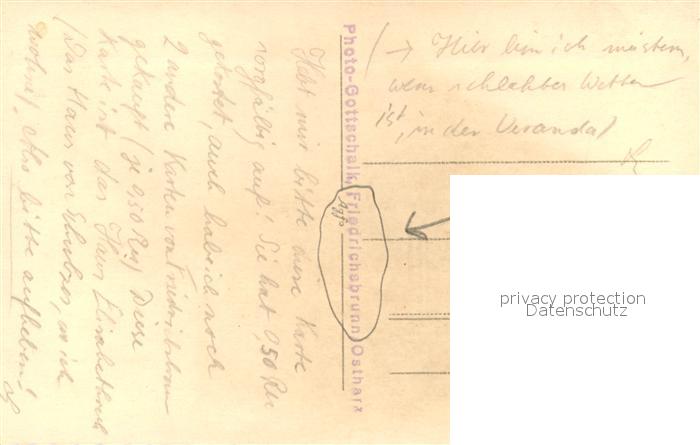 Hebt mir bitte diese Karte
sorgfältig auf! Sie hat 0,50 RM
gekostet, auch habe ich noch
2 andere Karten von Friedrichsbrunn
gekauft (je 0,50 RM) Diese
Karte ist das Haus Elisabethruh
(Das Haus von wo ich
wohne), Also bitte aufheben!
Photo-Gottschalk, Friedrichsbrunn/Ostharz
(→ Hier bin ich meistens,
wenn schlechtes Wetter
ist, in der Veranda)
privacy protection
Datenschutz